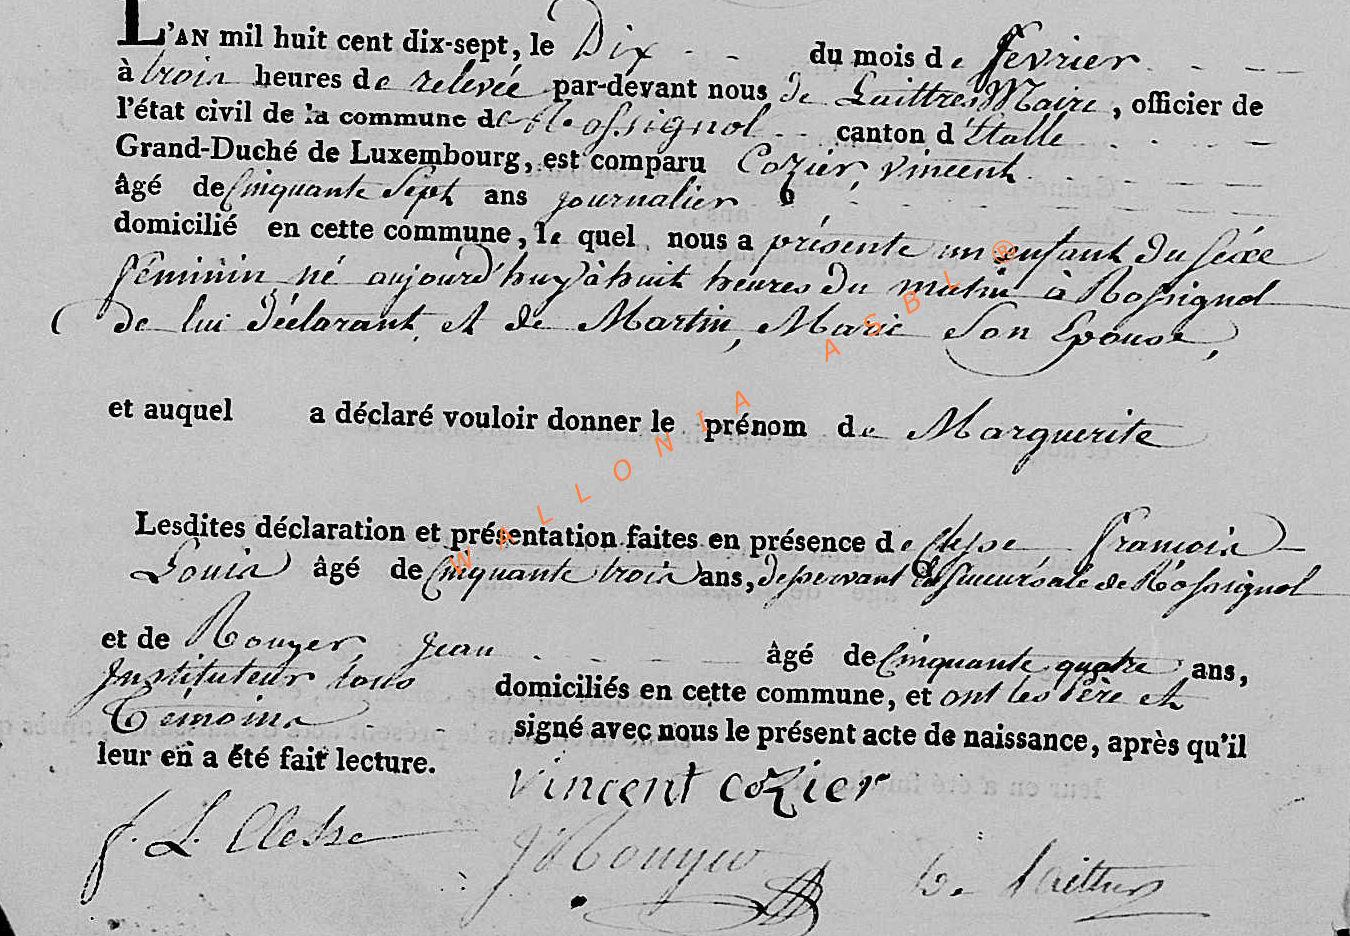 L'AN mil huit cent dix-sept, le Dix - - du mois de fevrier - - -
à trois heures de relevée par-devant nous de Laittres Maire, officier de
l'état civil de la commune de Rossignol - - canton d'Etalle
Grand-Duché de Luxembourg, est comparu Cozier, vincent
âgé de Cinquante Sept ans journalier
domicilié en cette commune, le quel nous a présenté un enfant du séxe
féminin, né aujourd'huy à huit heures du matin à Rossignol
de lui déclarant, et de Martin, Marie Son Epouse,
et auquel a déclaré vouloir donner le prénom de Marguerite
Lesdites déclaration et présentation faites en présence de Clesse, francois
Louis âgé de Cinquante trois ans, desservant la succursale de Rossignol
et de Rouyer, jean âgé de Cinquante quatre ans,
Instituteur tous domiciliés en cette commune, et ont les Père et
Témoins signé avec nous le présent acte de naissance, après qu'il
leur en a été fait lecture.
vincent cozier
f. L. Clesse
J Rouyer
De Laittres
WALLONIA ASBL ®